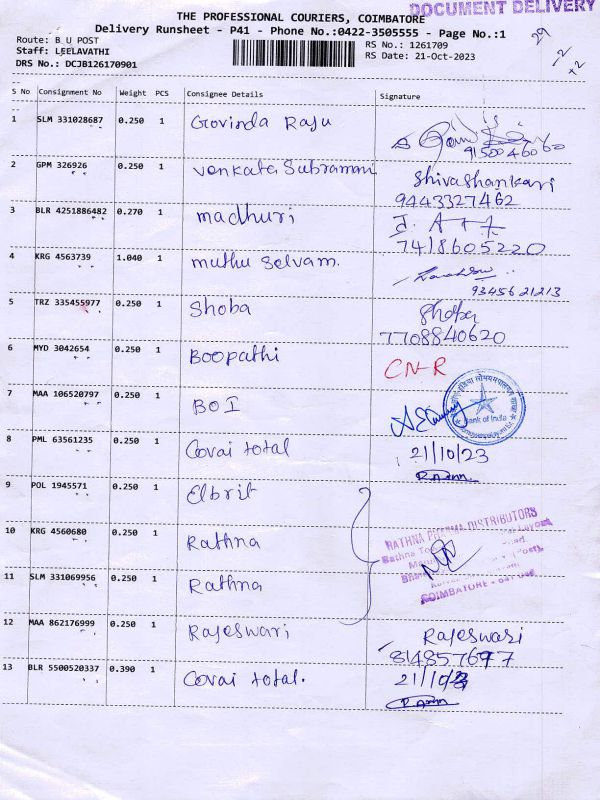 DOCUMENT DELIVERY
THE PROFESSIONAL COURIERS, COIMBATORE
Delivery Runsheet - P41 - Phone No.:0422-3505555 - Page No.:1
Route: B U POST
RS No.: 1261709
Staff: LEELAVATHI
RS Date: 21-Oct-2023
DRS No.: DCJB126170901
29
S No Consignment No Weight PCS Consignee Details Signature
1 SLM 331028687 0.250 1 Govinda Raju
9150046060
2 GPM 326926 0.250 1 Venkata Subramani Shivashankari
9443327462
3 BLR 4251886482 0.270 1 madhuri
7418605220
4 KRG 4563739 1.040 1 muthu Selvam.
9345621213
5 TRZ 335455977 0.250 1 Shoba Shoba
7708840620
6 MYD 3042654 0.250 1 Boopathi CN-R
7 MAA 106520797 0.250 1 BOI
Bank of India
8 PML 63561235 0.250 1 Covai total 21/10/23
9 POL 1945571 0.250 1 Elbrit
RATHNA PHARMA DISTRIBUTORS
10 KRG 4560680 0.250 1 Rathna
11 SLM 331069956 0.250 1 Rathna
COIMBATORE
12 MAA 862176999 0.250 1 Rajeswari Rajeswari
814857697
13 BLR 5500520337 0.390 1 Covai total.